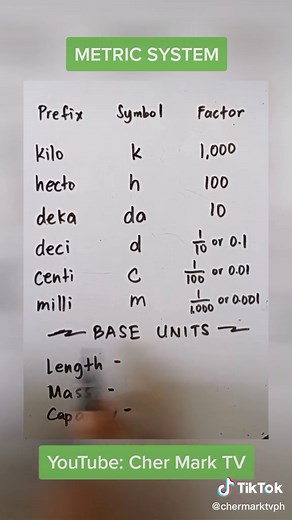 METRIC SYSTEM
Prefix Symbol Factor
kilo k 1,000
hecto h 100
deka da 10
deci d 1/10 or 0.1
centi c 1/100 or 0.01
milli m 1/1,000 or 0.001
BASE UNITS
Length -
Mass -
-
YouTube: Cher Mark TV
TikTok
@chermarktvph